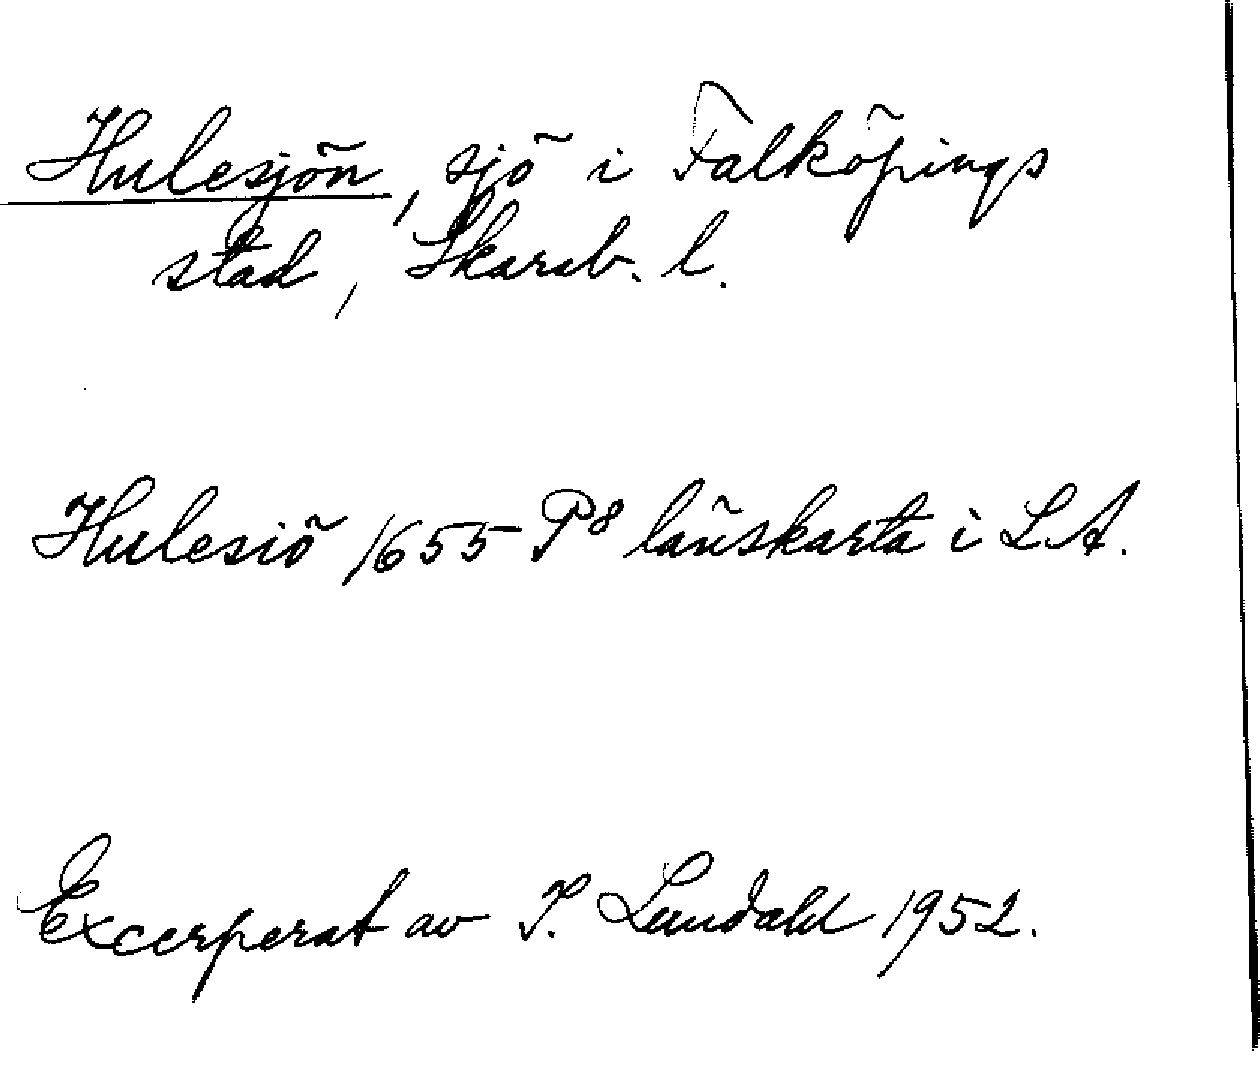 Hulesjön, sjö i Falköpings
stad, Skarab. l.
Hulesiö 1655 P8 länskarta i LA.
Excerperat av I. Lundahl 1952.